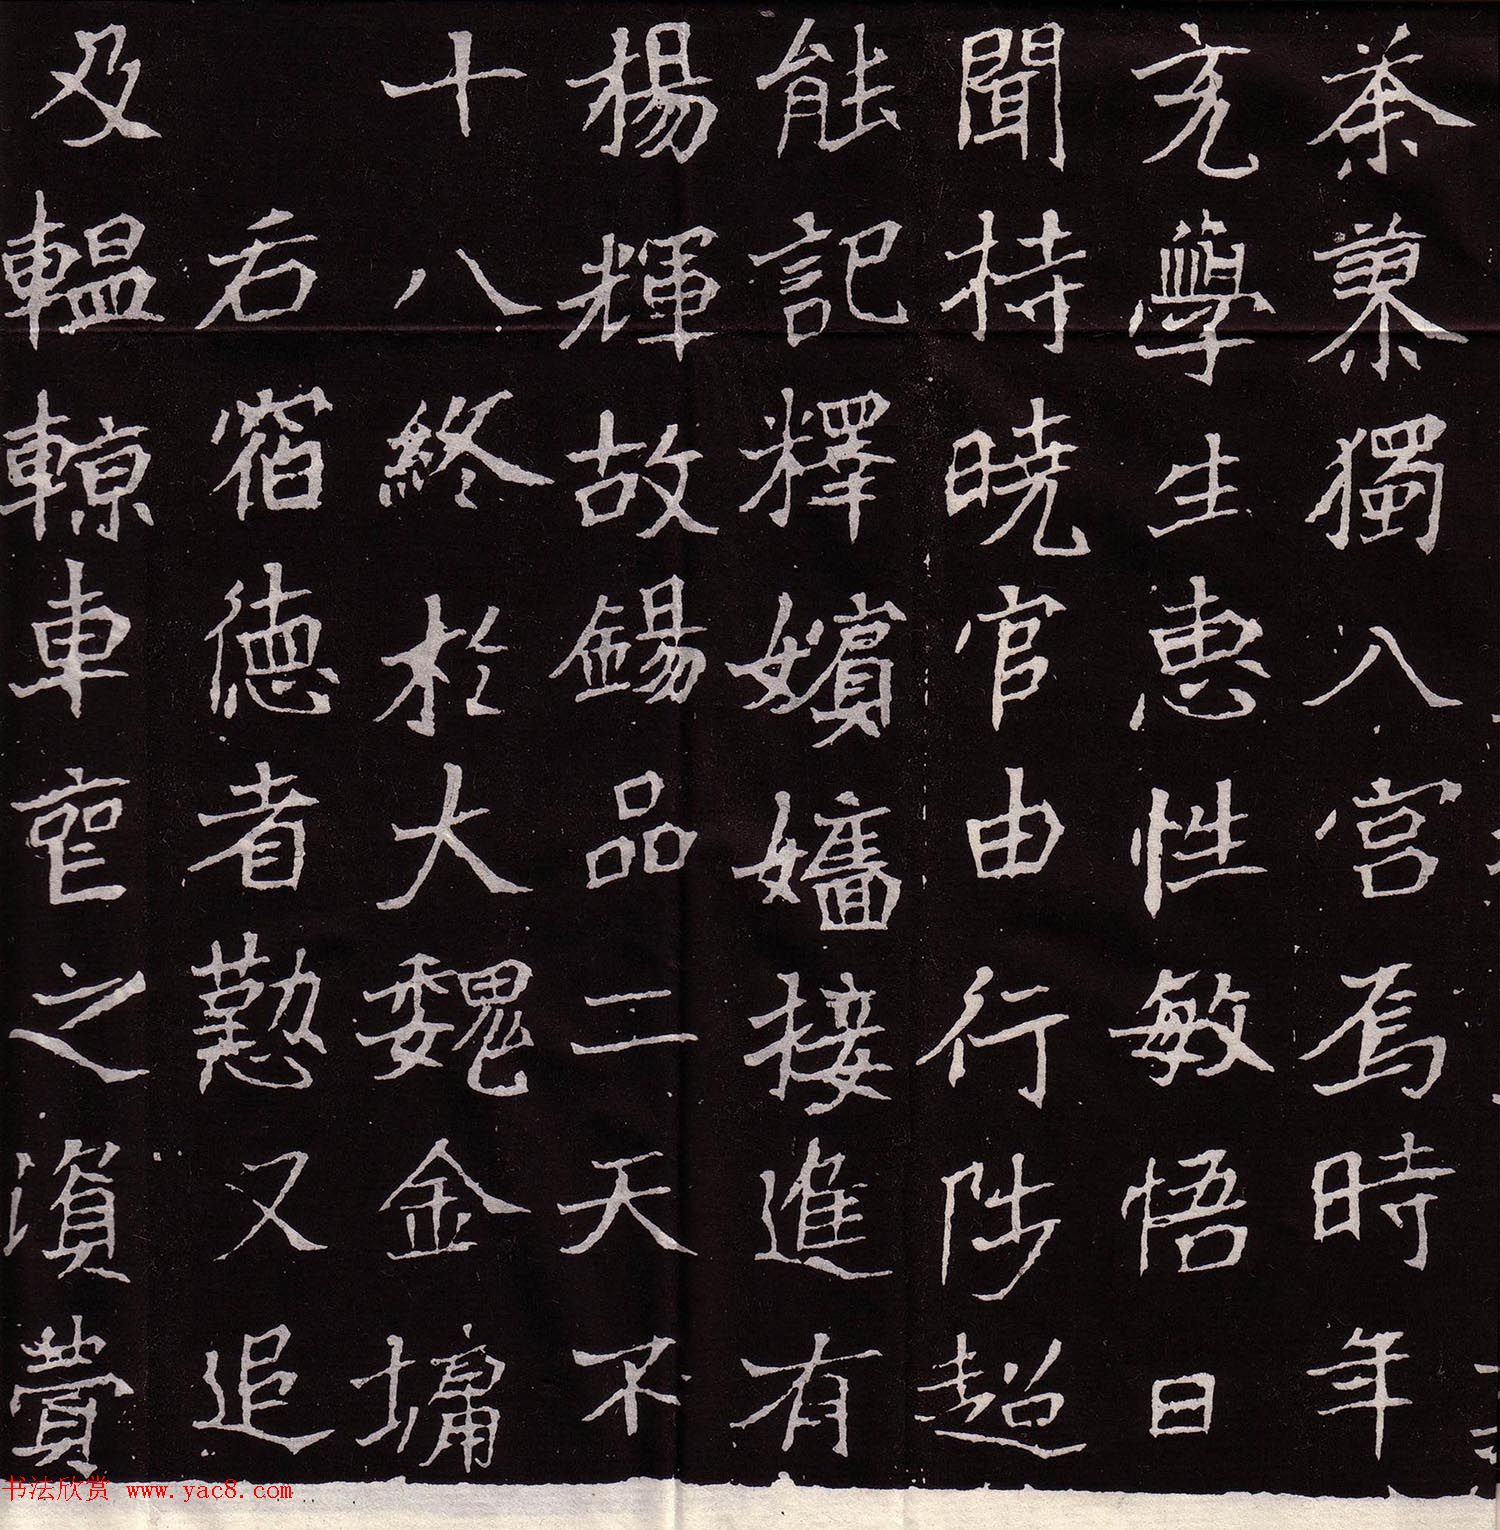 茶蓼獨入宮焉時年
充學生惠性敏悟日
聞持曉官由行陟超
能記釋嬪嬙接進有
楊輝故錫品二天不
十八終於大魏金墉
右宿德者懃又追
及轀輬車窀之湏
书法欣赏 www.yac8.com